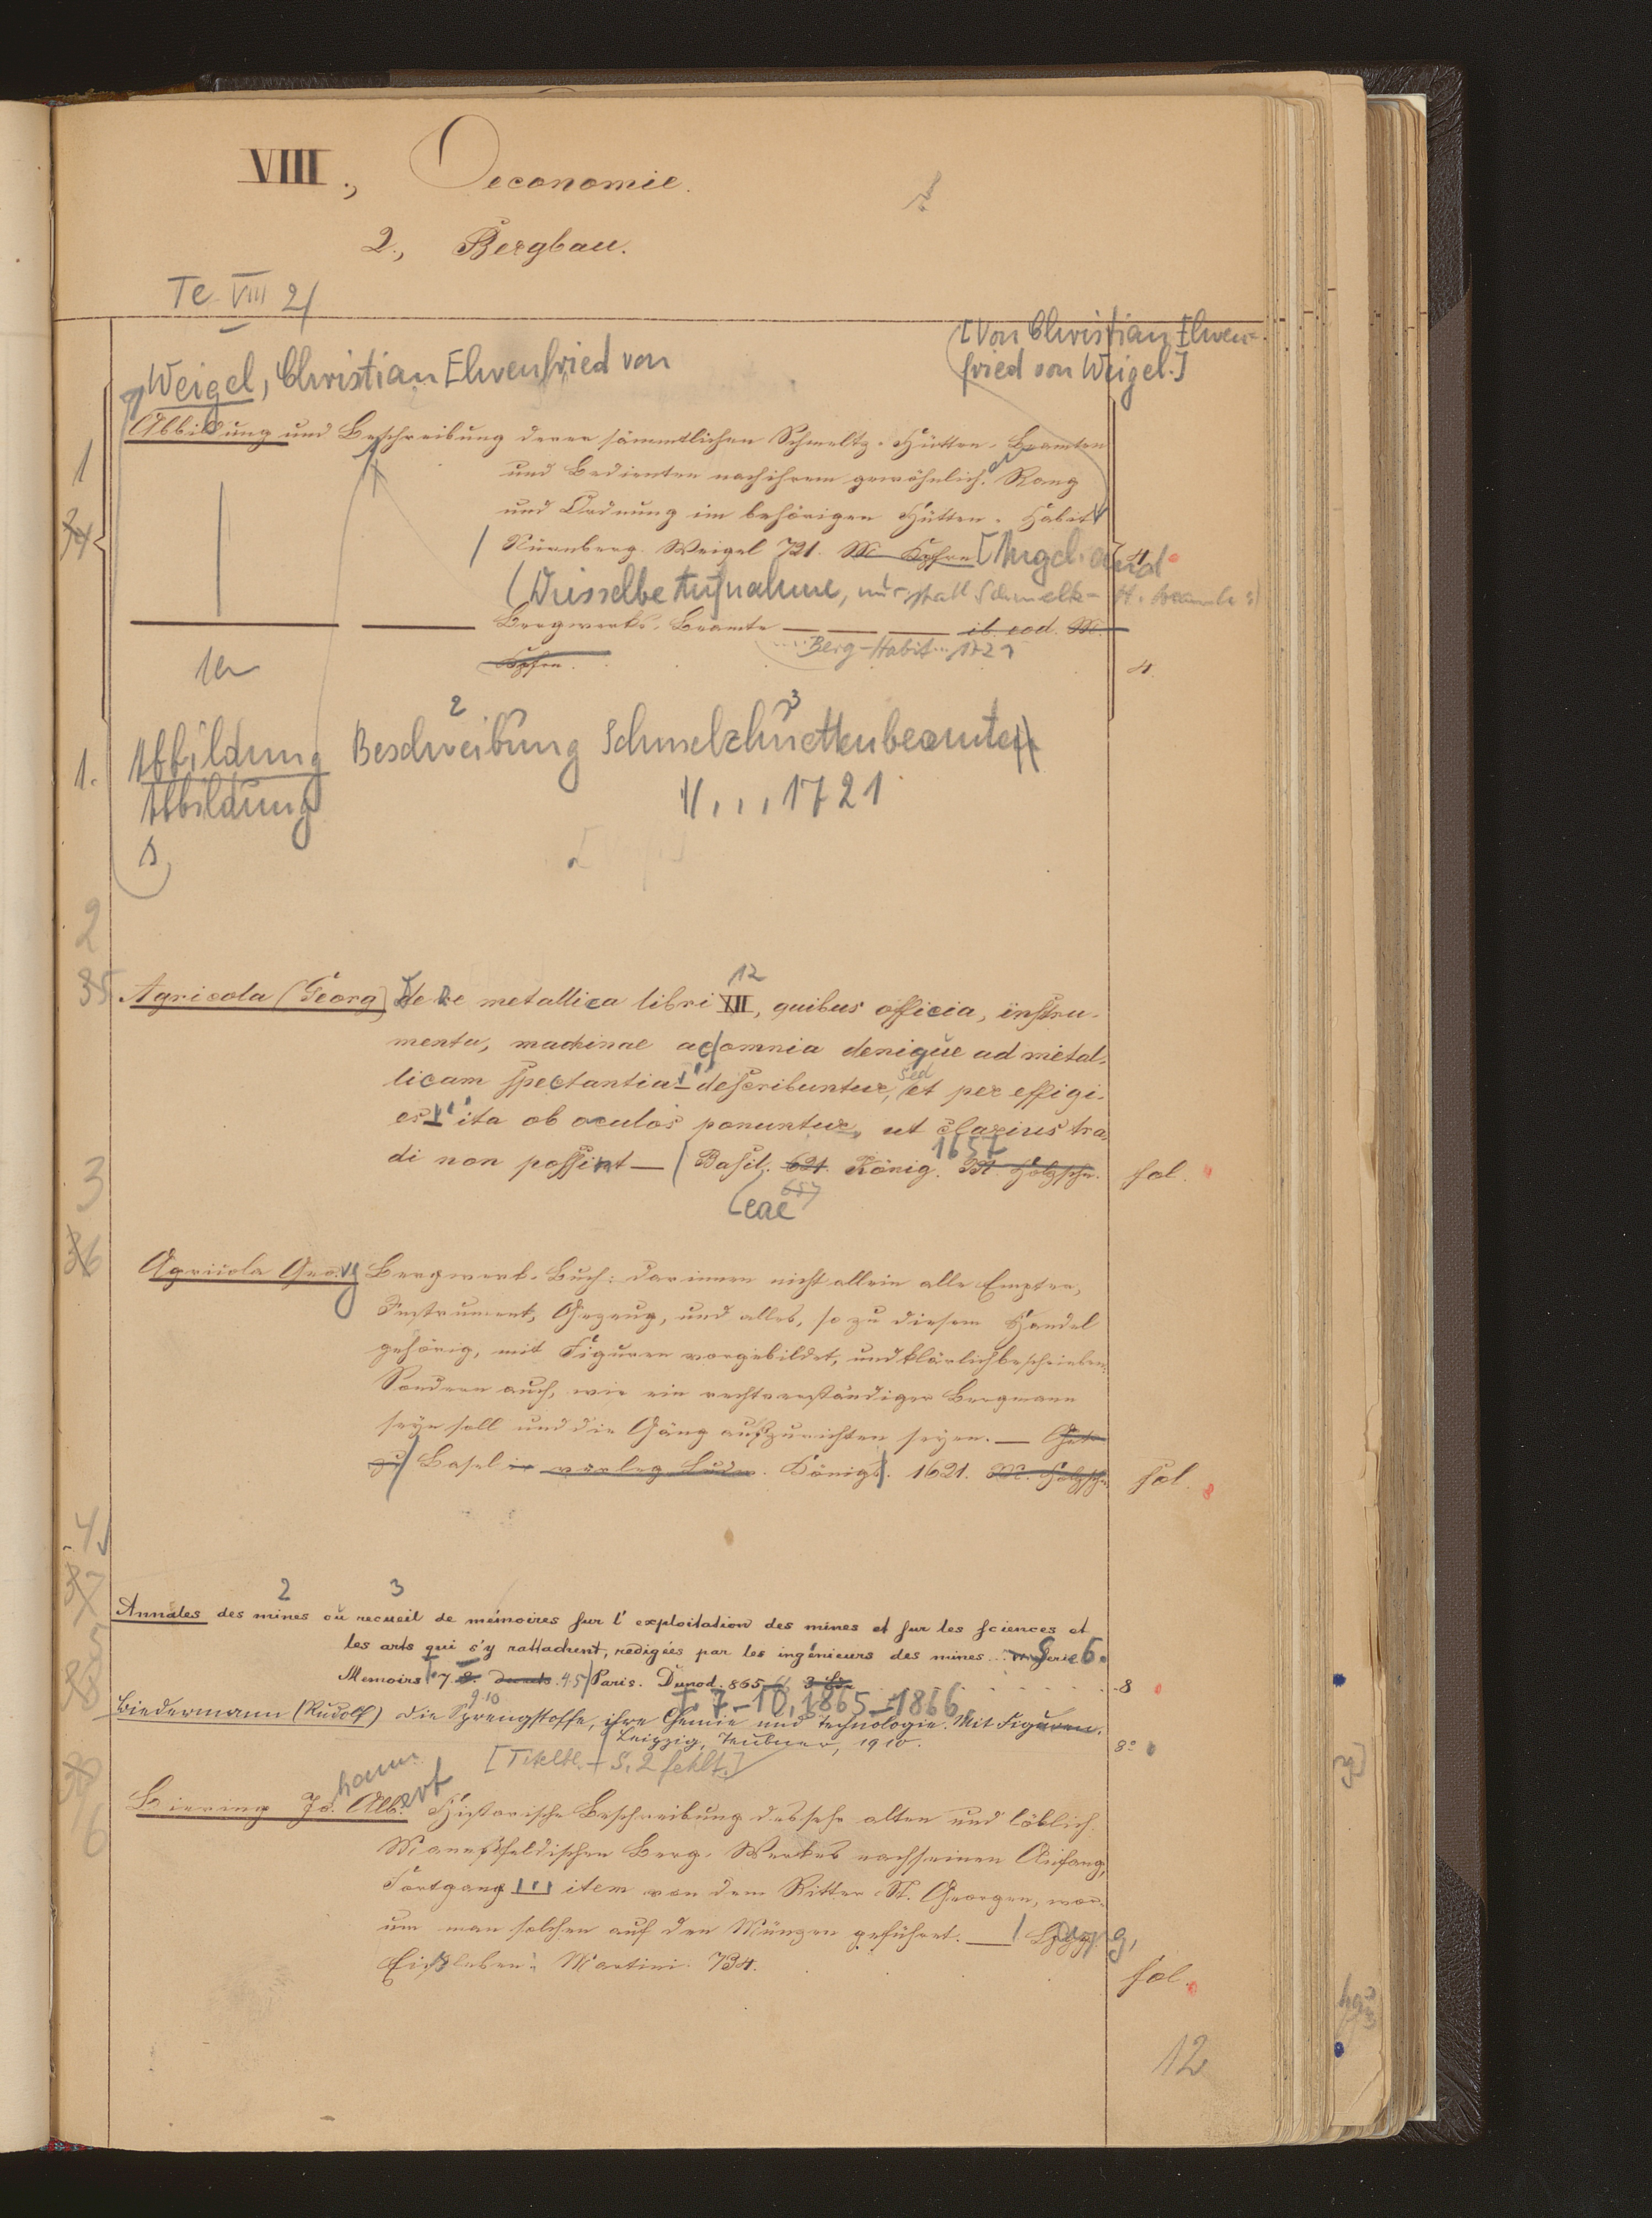 VIII., Oeconomie.
2., Bergbau.
Te VIII 2/
[Von Christian Ehren-
fried von Weigel.]
Weigel, Christian Ehrenfried von
1
Abbildung und Beschreibung derer sämmtlichen Schmeltz-Hütten-Beamten
und Bedienten nach ihrem gewöhnlich. Rang
und Ordnung im behörigen Hütten-Habit
Nürnberg. Weigel 721. M Kpfrn [Angeb. 4
(Dieselbe Aufnahme, nur statt Schmelz-
Bergwerks-Beamte ib. eod. M.
Berg-Habit... 1721
Kpfrn. 4.
2 3
1. Abbildung Beschreibung Schmelzhuettenbeamten
Abbildung 1/, , , 1721
2
35 Agricola (Georg) de re metallica libri XII 12, quibus officia, instru-
menta, machinae ac omnia denique ad metal-
licam spectantia describuntur, sed et per effigi-
es ita ob oculos ponuntur, ut clarius tra-
di non possint — Basil. 621. König. 1657 M Holzschn. fol.
657
eae
3
36 Agricola Georg Bergwerk-Buch: darinnen nicht allein alle Empter,
Instrument, Gezeug, und alles, so zu diesem Handel
gehörig, mit Figuren vorgebildet, und klärlich beschrieben:
Sondern auch, wie ein rechtverständiger Bergmann
seyn soll und die Gäng auszurichten seyen. —
zu Basel in verleg Ludw. Königs. 1621. M. Holzschn fol.
4
37
2 3
Annales des mines ou recueil de mémoires sur l'exploitation des mines et sur les sciences et
les arts qui s'y rattachent, redigées par les ingénieurs des mines... Serie 6.
Memoirs 7. 8. Paris. Dunod. 865 8
9.10 T. 7-10, 1865-1866
5
38
Biedermann (Rudolf) Die Sprengstoffe, ihre Chemie und Technologie. Mit Figuren.
Leipzig, Teubner, 1910. 8°
[Titelbl. + S. 2 fehlt.]
39
6
Biering Johann Albert Historische Beschreibung des sehr alten und löblich.
Mannßfeldischen Berg-Werkes nach seinen Anfang,
Fortgang item von dem Ritter St. Georgen, wor-
um man solchen auf den Münzen geführet. —
Eißleben: Martini. 734. fol.
12